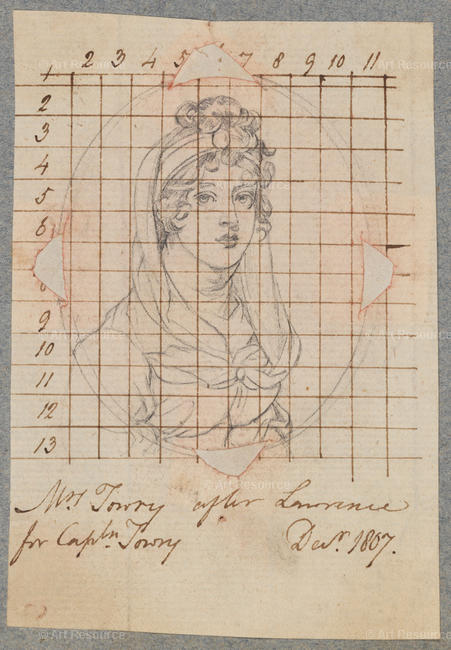 © Art Resource
1 2 3 4 5 7 8 9 10 11
2
3
4
5
6
8
9
10
11
12
13
Mrs Towry after Lawrence
for Captn. Towry Decr. 1807.
© Art Resource